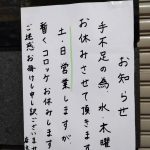 お知らせ
手不足の為、水・木曜
お休みさせて頂きます
土・日営業しますが
暫くコロッケお休みします
ご迷惑お掛けし申し訳ございません